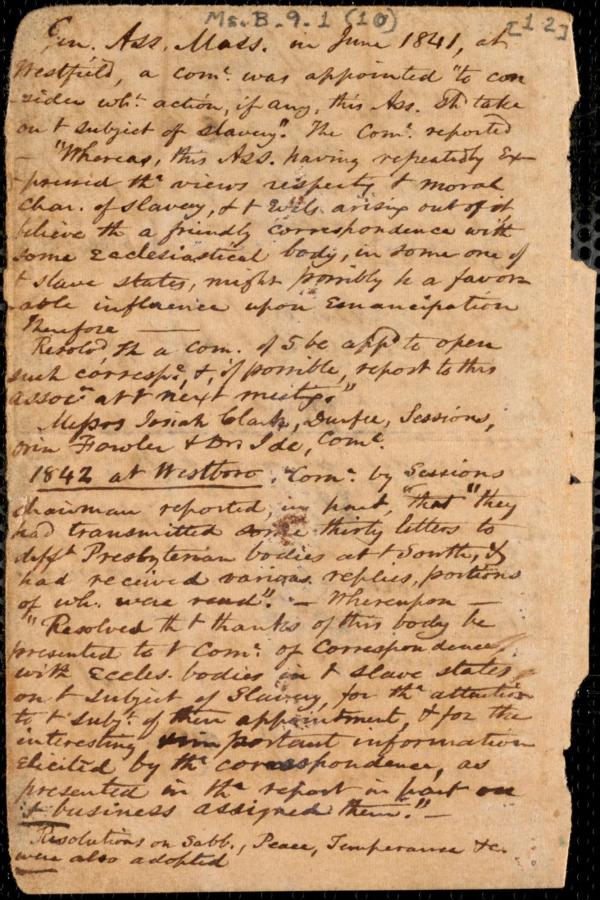 Ms. B. 9. 1 (10) [12]
Gen. Ass. Mass. in June 1841, at
Westfield, a comᵉ. was appointed "to con
sider whᵗ. action, if any, this Ass. shᵈ take
on t subject of slavery". The Comᵉ. reported
— "Whereas, this Ass. having repeatedly Ex-
pressed thʳ views respectg t moral
char. of slavery, & t Evils arising out of it,
believe th a friendly correspondence with
some Ecclesiastical body, in some one of
t slave states, might possibly be a favor-
able influence upon Emancipation
Therefore —
Resolvᵈ, Th a Com. of 5 be appᵈ to open
such correspᵉ, &, if possible, report to this
assocⁿ at t next meetg."
Messrs Josiah Clark, Durfee, Sessions,
Orin Fowler & Dr. Ide, Comᵉ.
1842 at Westboro. Comᵉ. by Sessions
chairman reported, in part, "that "they
had transmitted some thirty letters to
diffᵗ Presbyterian bodies at t South, &
had received various replies, portions
of wh. were read". — Whereupon —
"Resolved th t thanks of this body be
presented to t Comᵉ. of Correspondence
with Eccles. bodies in t slave states
on t subject of Slavery, for thʳ attention
to t subjᵗ. of their appointment, & for the
interesting portant information
Elicited by thʳ correspondence, as
presented in thʳ report in part on
t business assigned them." —
Resolutions on Sabb., Peace, Temperance &c.
were also adopted